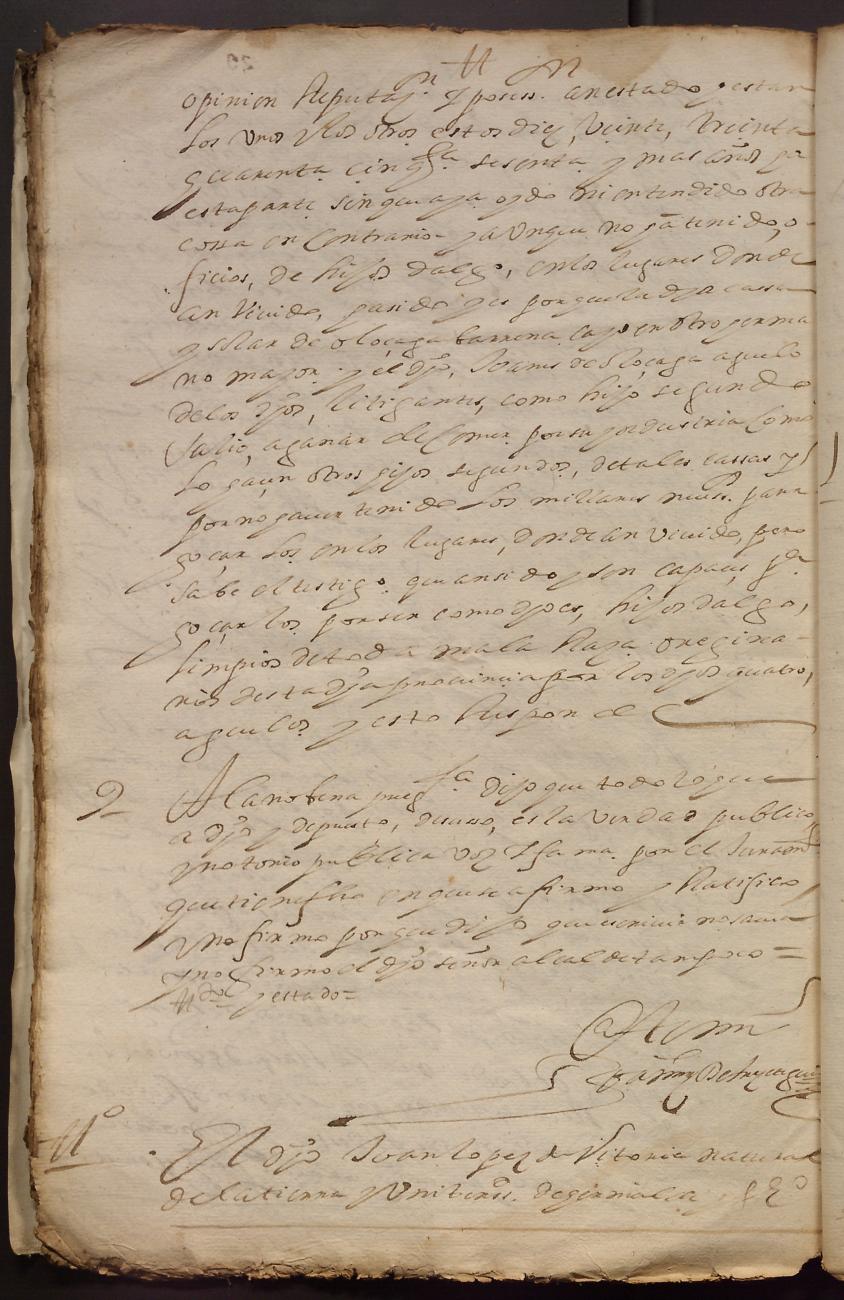 opinion Reputaçn y poses.n an estado y estan
los unos y los otros estos diez, veinte, treinta
quarenta, cinqta sesenta y mas años a
esta parte sin que aya oydo ni entendido otra
cossa en contrario y aunque no an tenido o
ficios, de hijos dalgo, en los lugares donde
an vivido, ha sido y es porque la dha cassa
y solar de oloçaga barrena, cayo en otro herma
no mayor y el dho, Joanes de oloçaga aguelo
de los dhos, litigantes, como hijo segundo
salio, a ganar de comer por su yndustria como
lo haçen otros hijos segundos, de tales cassas y
por no haver tenido los millares neçess.os para
goçar los en los lugares, donde an vivido, pero
sabe el testigo que an sido y son capaçes pa
goçarlos por ser como dho es, hijos dalgo,
limpios de toda mala Raza origina
rios desta dha provincia por los dhos quatro,
aguelos y esto Responde
9 A la nobena pregta dijo que todo lo que
a dho y depuesto, desuso, es la verdad publico
y notorio publica voz y fama por el Juramto
que tiene fho en que se afirmo y Ratifico
y no firmo porque dijo que escrivir no savia
y no firmo el dho señor alcalde tampoco =
y estado =
Ante mi
tº El dho Juan lopez de Vitoria natural
de la tierra y Unibers.